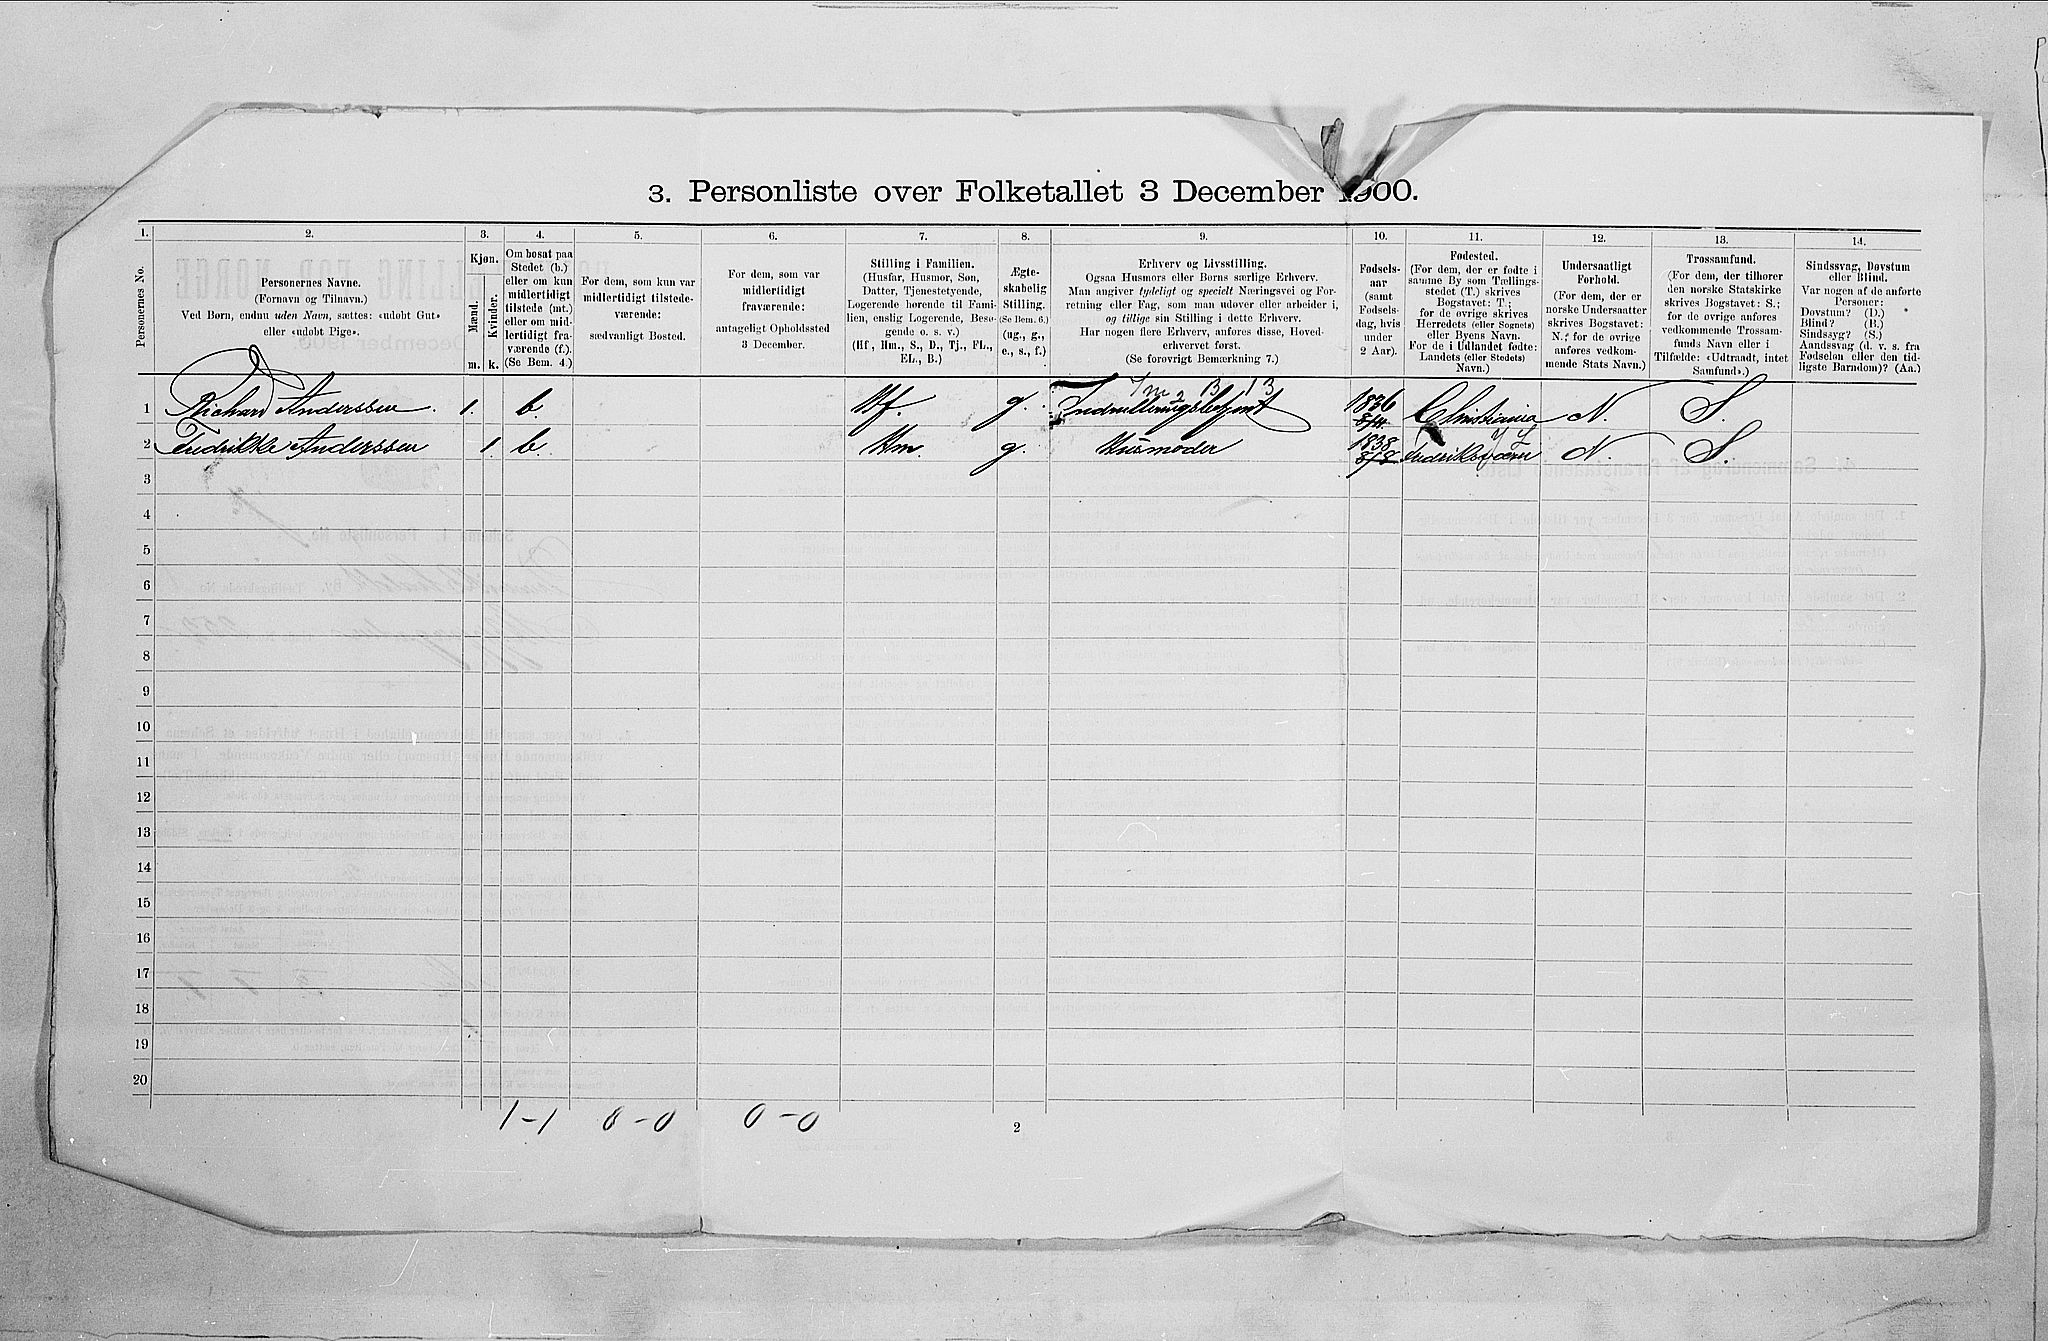 3. Personliste over Folketallet 3 December 1900.
1.
Personernes No.
2.
Personernes Navne.
(Fornavn og Tilnavn.)
Ved Børn, endnu uden Navn, sættes: «udøbt Gut»
eller «udøbt Pige».
3.
Kjøn.
Mænd.
Kvinder.
m. k.
4.
Om bosat paa
Stedet (b.)
eller om kun
midlertidigt
tilstede (mt.)
eller om mid-
lertidigt fra-
værende (f.).
(Se Bem. 4.)
5.
For dem, som kun var
midlertidigt tilstede-
værende:
sædvanligt Bosted.
6.
For dem, som var
midlertidigt
fraværende:
antageligt Opholdssted
3 December.
7.
Stilling i Familien.
(Husfar, Husmor, Søn,
Datter, Tjenestetyende,
Logerende hørende til Fami-
lien, enslig Logerende, Besø-
gende o. s. v.)
(Hf, Hm., S., D., Tj., FL.,
EL., B.)
8.
Ægte-
skabelig
Stilling.
(Se Bem. 6.)
(ug., g.,
e., s., f.)
9.
Erhverv og Livsstilling.
Ogsaa Husmors eller Børns særlige Erhverv.
Man angiver tydeligt og specielt Næringsvei og For-
retning eller Fag, som man udøver eller arbeider i,
og tillige sin Stilling i dette Erhverv.
Har nogen flere Erhverv, anføres disse, Hoved-
erhvervet først.
(Se forøvrigt Bemærkning 7.)
10.
Fødsels-
aar
(samt
Fødsels-
dag, hvis
under
2 Aar).
11.
Fødested.
(For dem, der er fødte i
samme By som Tællings-
stedet (T.) skrives
Bogstavet: T.;
for de øvrige skrives
Herredets (eller Sognets)
eller Byens Navn.
For de i Udlandet fødte:
Landets (eller Stedets)
Navn.)
12.
Undersaatligt
Forhold.
(For dem, der er
norske Undersaatter
skrives Bogstavet:
N.; for de øvrige
anføres vedkom-
mende Stats Navn.)
13.
Trossamfund.
(For dem, der tilhører
den norske Statskirke
skrives Bogstavet: S.;
for de øvrige anføres
vedkommende Trossam-
funds Navn eller i
Tilfælde: «Udtraadt, intet
Samfund».)
14.
Sindssvag, Døvstum
eller Blind.
Var nogen af de anførte
Personer:
Døvstum? (D.)
Blind? (B.)
Sindssyg? (S.)
Aandssvag (d. v. s. fra
Fødselen eller den tid-
ligste Barndom)? (Aa.)
1 Richard Anderssen. 1. b. Hf. g. 1836 Christiania N. S.
2 Fredrikke Anderssen 1. b. Hm. g. Husmoder 1838 8/8 Fredriksværn N. S.
3
4
5
6
7
8
9
10
11
12
13
14
15
16
17
18
19
20
1-1 0-0 0-0
2